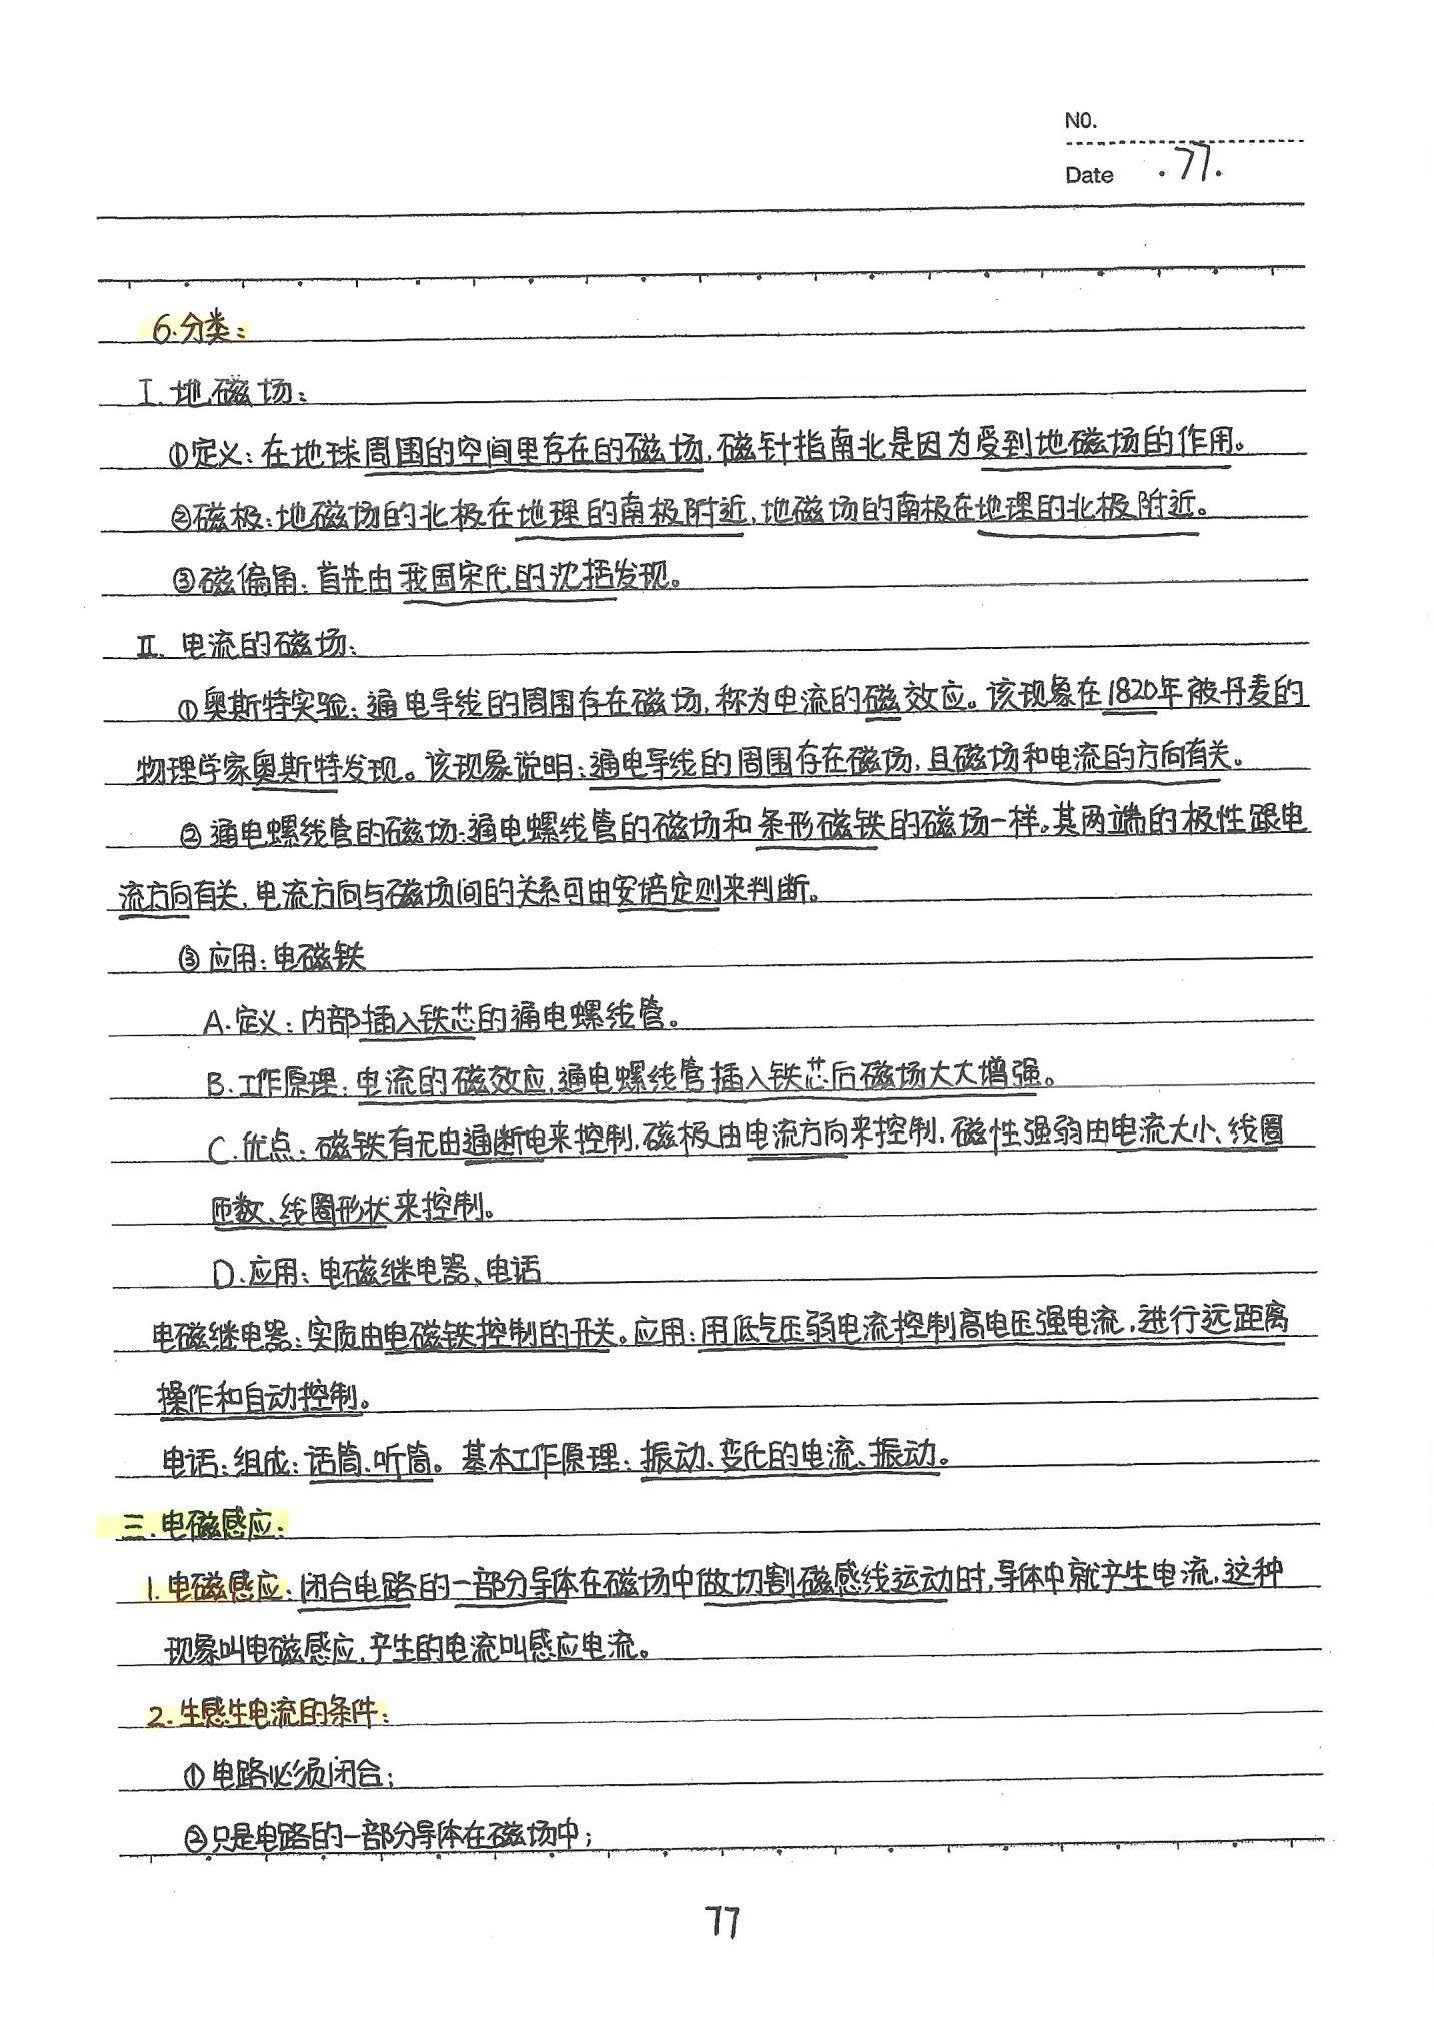 NO.
Date .77.
6.分类:
I.地磁场:
①定义:在地球周围的空间里存在的磁场,磁针指南北是因为受到地磁场的作用。
②磁极:地磁场的北极在地理的南极附近,地磁场的南极在地理的北极附近。
③磁偏角:首先由我国宋代的沈括发现。
II.电流的磁场:
①奥斯特实验:通电导线的周围存在磁场,称为电流的磁效应。该现象在1820年被丹麦的
物理学家奥斯特发现。该现象说明:通电导线的周围存在磁场,且磁场和电流的方向有关。
②通电螺线管的磁场:通电螺线管的磁场和条形磁铁的磁场一样。其两端的极性跟电
流方向有关,电流方向与磁场间的关系可由安培定则来判断。
③应用:电磁铁
A.定义:内部插入铁芯的通电螺线管。
B.工作原理:电流的磁效应,通电螺线管插入铁芯后磁场大大增强。
C.优点:磁铁有无由通断电来控制,磁极由电流方向来控制,磁性强弱由电流大小、线圈
匝数、线圈形状来控制。
D.应用:电磁继电器、电话
电磁继电器:实质由电磁铁控制的开关。应用:用低气压弱电流控制高电压强电流,进行远距离
操作和自动控制。
电话:组成:话筒、听筒。基本工作原理:振动、变化的电流、振动。
三.电磁感应:
1.电磁感应:闭合电路的一部分导体在磁场中做切割磁感线运动时,导体中就产生电流,这种
现象叫电磁感应,产生的电流叫感应电流。
2.生感生电流的条件:
①电路必须闭合;
②只是电路的一部分导体在磁场中;
77